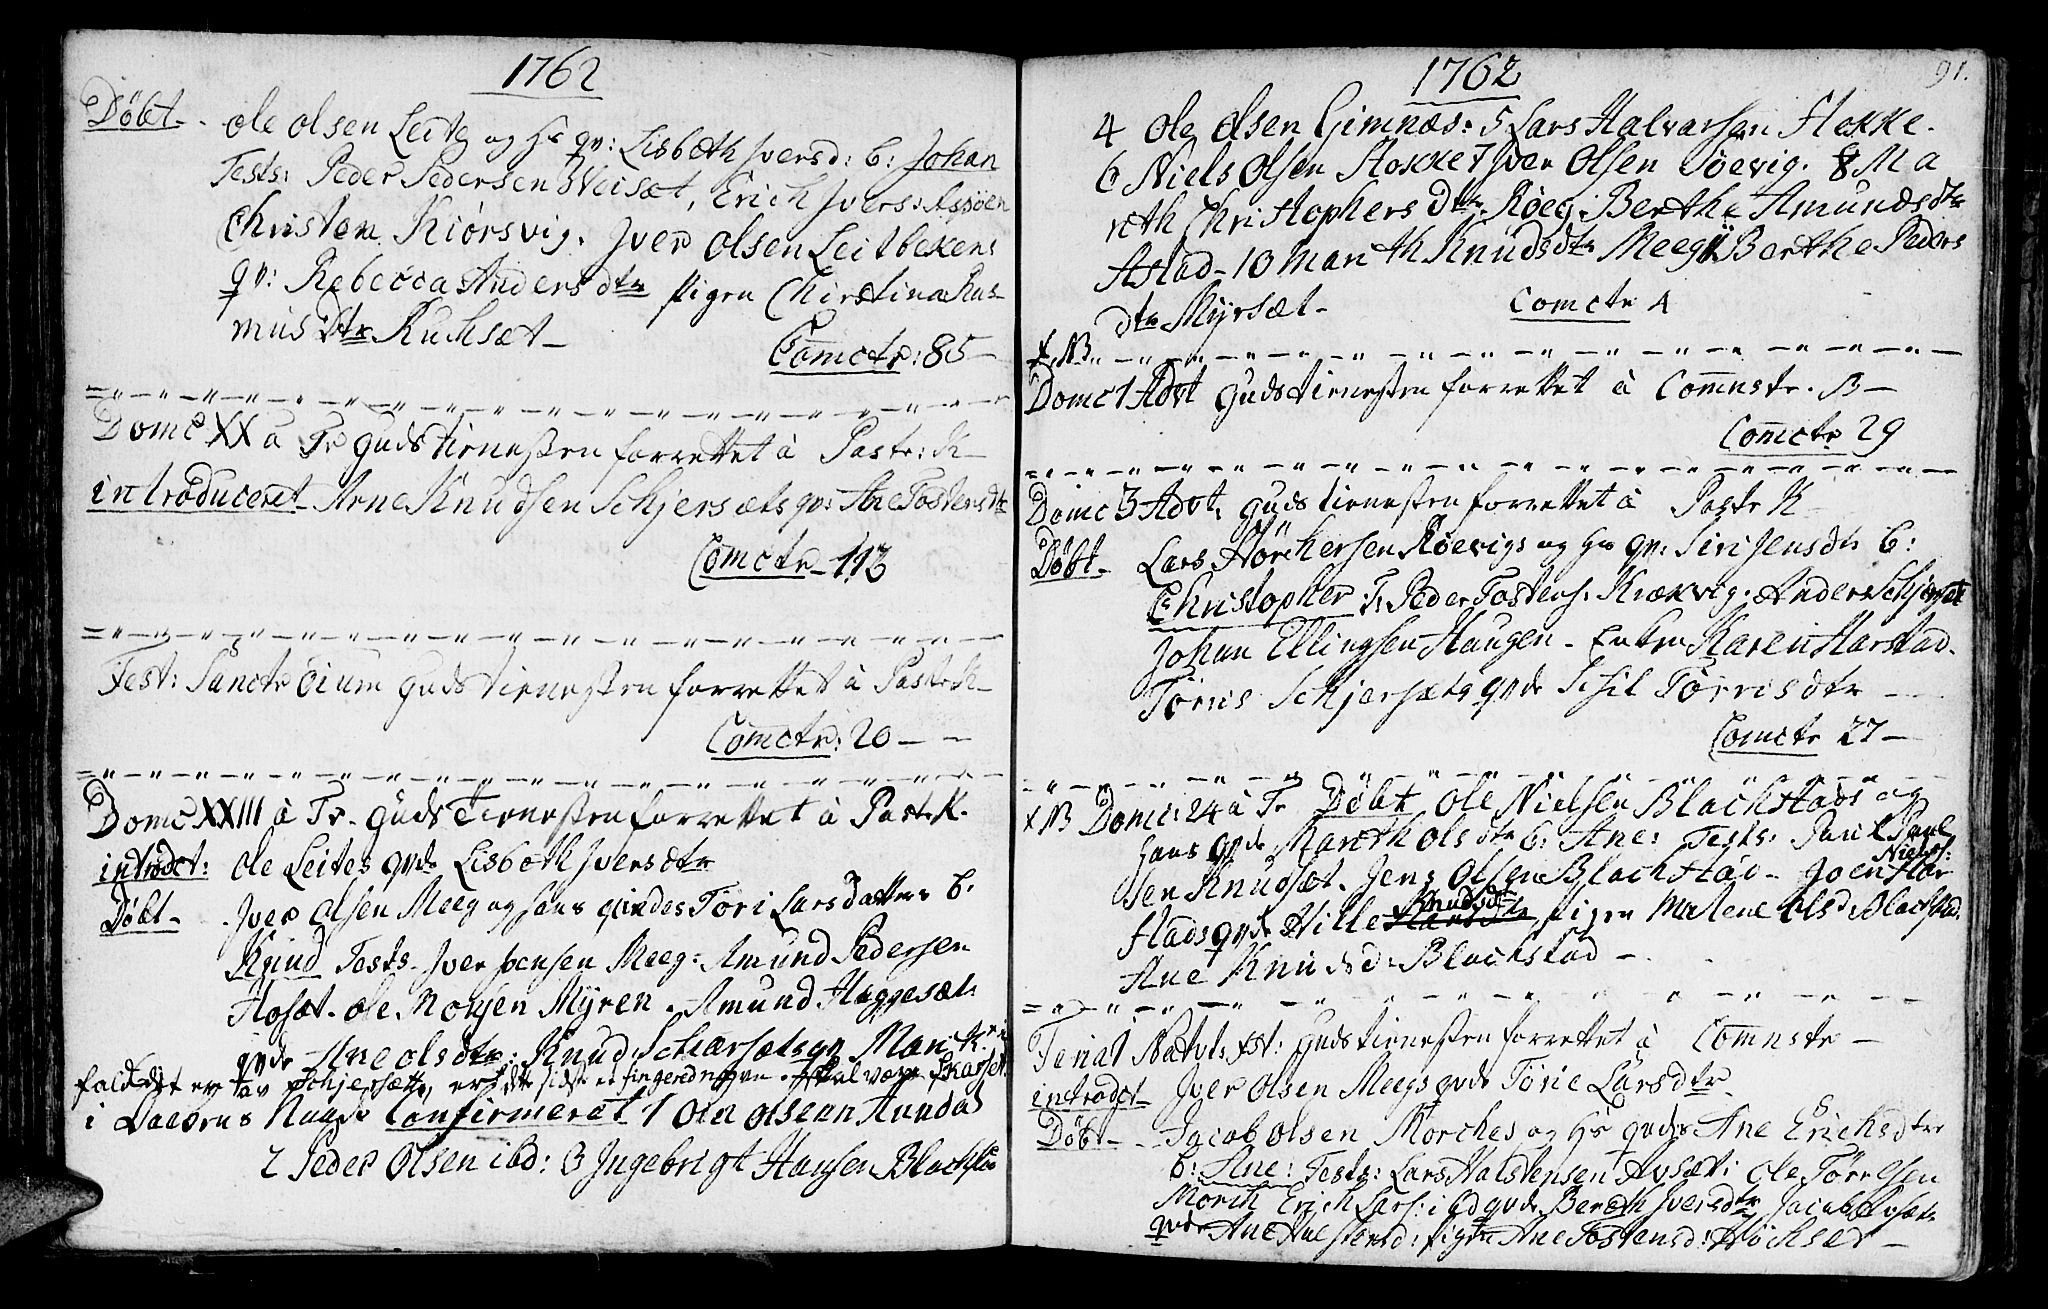 1762
Døbt - ole olsen Leite og Hs qv: Lisbeth Jversd: b: Johan
Tests: Peder Pedersen Weisæt, Erich Jvers: Aspøen
Christen Kiørsvig. Jver Olsen Leitbekens
qv: Rebecca Anders dtr pigen Chirstina Ras-
mus Dtr Kuchsæt -
Comctr: 85 -
Domc XX a Tr Guds tienesten forrettet à Pastr: K -
introduceret - Arne Knudsen Schjersæts qv: Ane Tostensdtr
Comctr - 113
Fest: Sanctr oium Guds tienesten forrettet à Past: K -
Comctr: 20 - -
Domc XXIII à Tr. Guds Tienesten forrettet à Past: K.
introdct: Ole Leites qvde Lisbeth Jversdtr
Døbt - Jver Olsen Meeg og hans qvindes Tori Larsdatter b.
Knud Tests - Jver Jensen Meeg: Amund Pedersen
Hosæt. Ole Monsen Myren. Amund Heggesæt.
qvde Ane olsdtr: Knud Schiærsæts qv Marit K.
faldet er av Schjersætte, er sidste
i Daabens Naade Confirmeret 1 Ole Olsenn Aundal
2 Peder Olsen ibd: 3 Jngebrigt Hansen Blachsta
1762 91.
4 Ole Olsen Gimnæs: 5 Lars Halvorsen Stokke.
6 Niels Olsen Stokke 7 Jver Olsen Søevig. 8 Ma
reth Christophers Dtr Røeg. Berthe Amundsdtr
Astad - 10 Marith Knudsdtr Meeg 11 Berthe Peders
dtr Myrsæt - Comctr 4
x NB
Domc 1 Advt Gudstienesten forrettet à Comnstr. B -
Comctr 29
Domc 3 Advt. Gudstienesten forrettet à Pastr K
Døbt - Lars Størchersen Røevigs og Hs qv: Siri Jensdtr b:
Christopher: T: Peder Tostens: Kræxvig. Anders Schjersæt
Johan Ellingsen Haugen - Enken Karen Harstad.
Tørris Schjersæts qvde Sisil Tørrisdtr -
Comctr 27 -
x NB Domc: 24 à Tr Døbt Ole Nielsen Blachstads og
hans qvde Mareth olsdtr b: Ane: Tests: Poul Poul
sen Knudsæt. Jens Olsen Blachstad - Joen Niels: Har
stads qvde Hille Knudsd: pigen Malene Olsd: Blachstad.
Ane Knudsd: Blachstad -
Feria 1 Natvt. Xst: Gudstienesten forrettet à Comnstr -
introdct - Jver Olsen Meegs qvde Torie Larsdtr.
Døbt - Jacob Olsen Morches og Hs qvde Ane Erichsdtr
b: Ane: Tests: Lars Halstensen Avsæt: Ole Tørresen
Morch Erich Lars: ibd qvde Bereth Jversdtr Jacob Avsæt
qvde Ane Halstensd: pigen Ane Tostensd: Høchset -